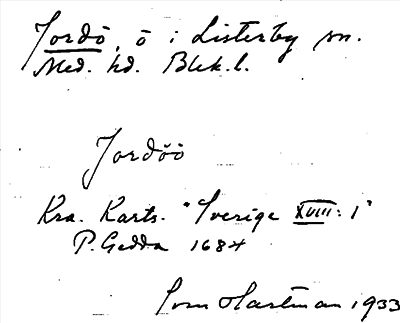 Jordö, ö i Listerby sn.
Med. hd. Blek. l.
Jordöö
Kra. Karts. "Sverige XVIII: 1"
P. Gedda 1684
Sven Hartman 1933